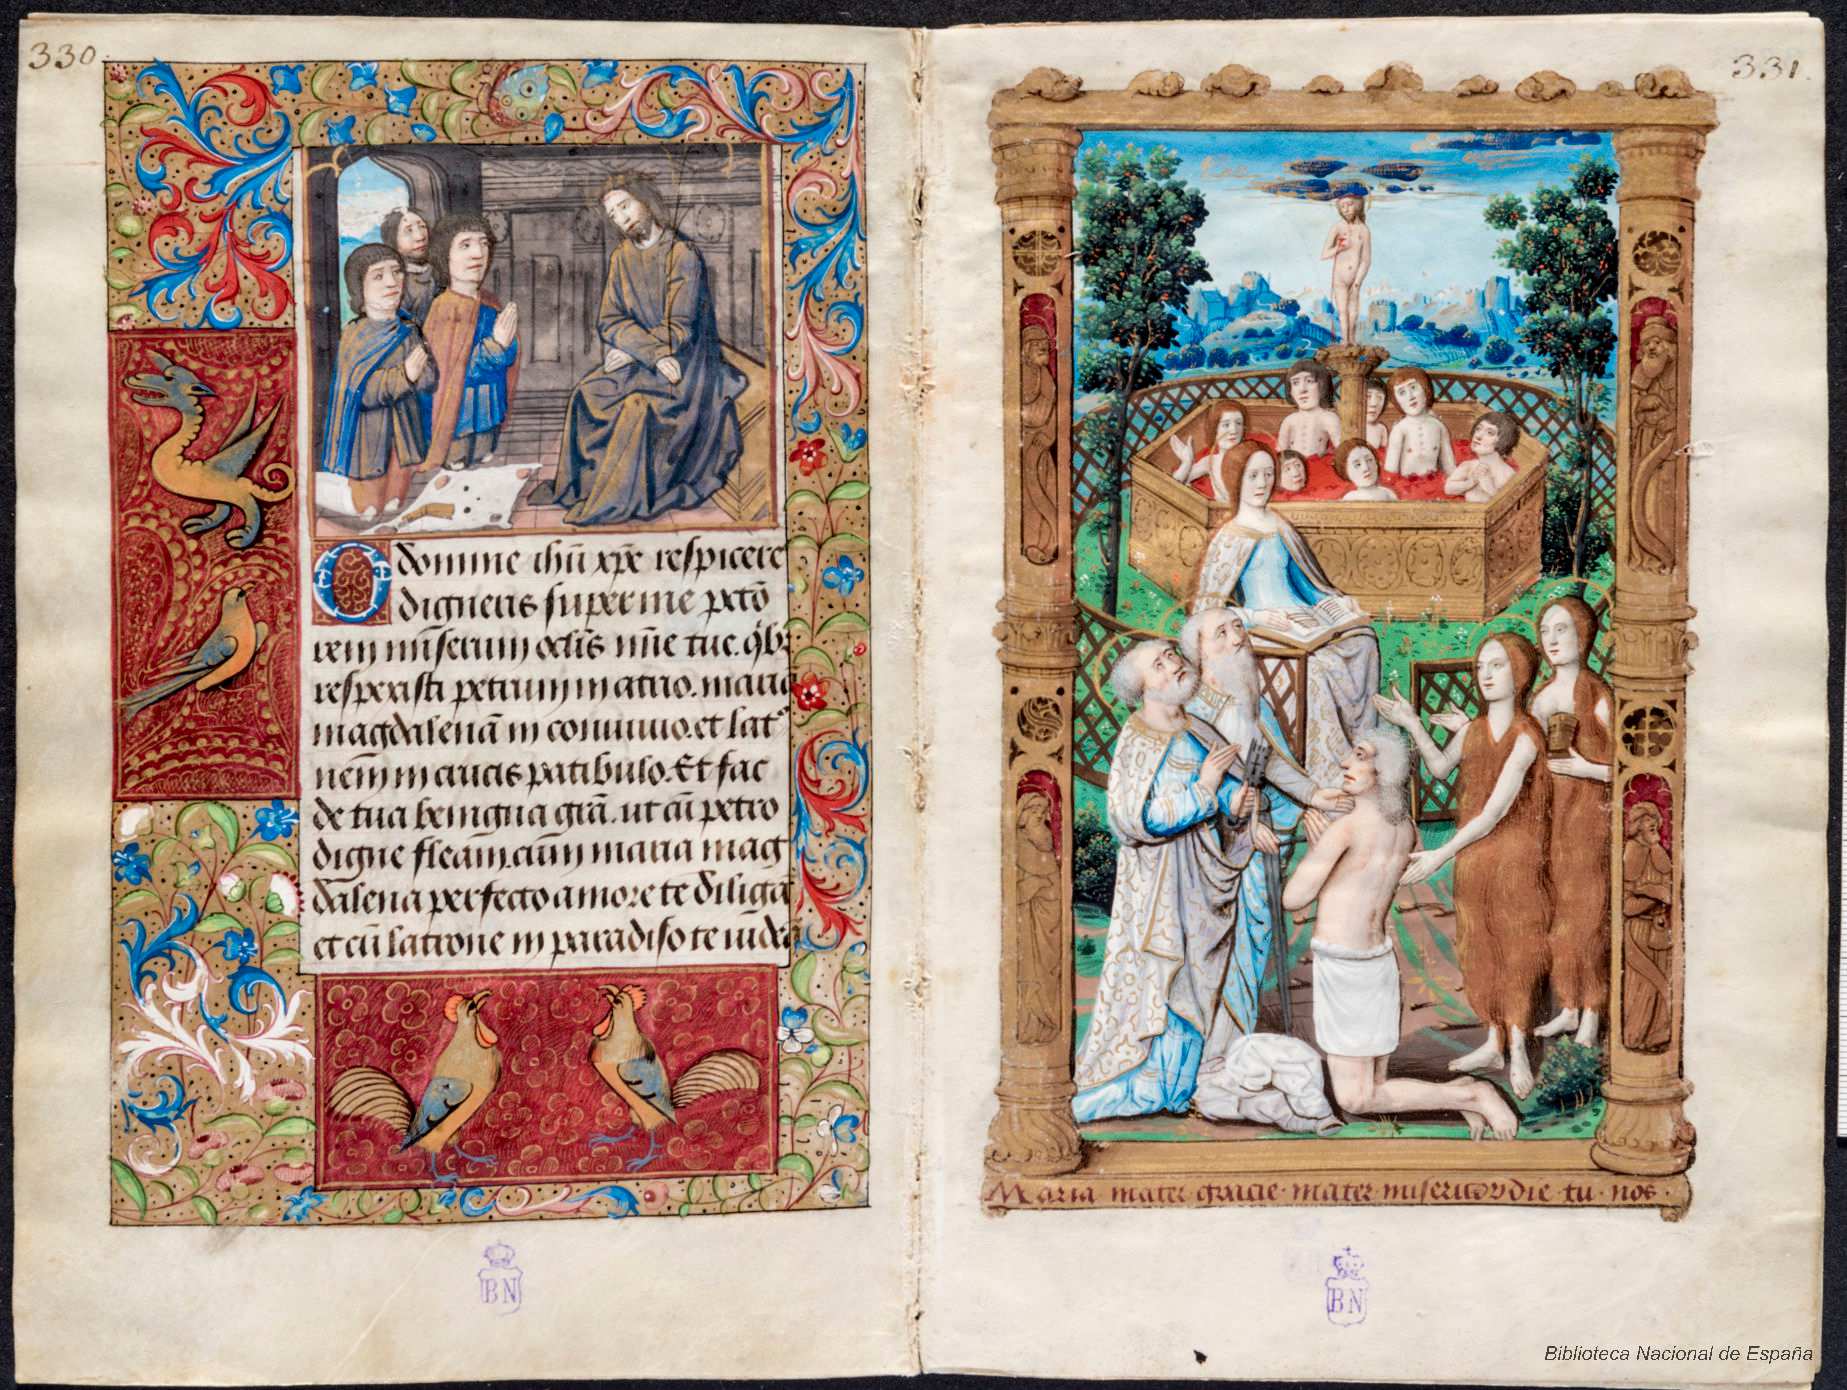 330.
O domine ihu xpe respicere
digneris super me pctō
rem miserum oclis mie tue. qbz
respexisti petrum in atrio. maria
magdalenā in conviuio. et lat
nem in crucis patibulo. Et fac
de tua benigna grā. ut cū petro
digne fleam. cum maria mag
dalena perfecto amore te diligā
et cū latrone in paradiso te uideā
BN
331.
Maria mater gracie · mater misericordie · tu · nos ·
BN
Biblioteca Nacional de España